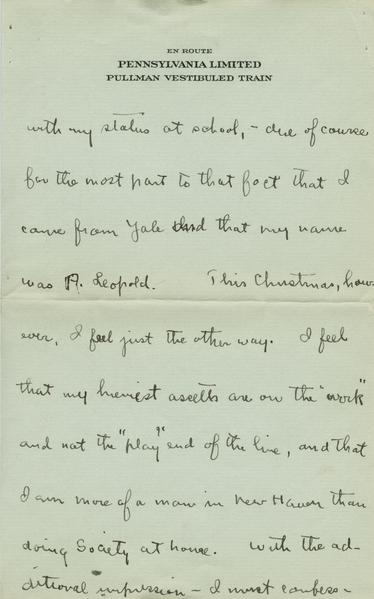 EN ROUTE
PENNSYLVANIA LIMITED
PULLMAN VESTIBULED TRAIN
with my status at school, - due of course
for the most part to that fact that I
came from Yale and that my name
was A. Leopold. This Christmas, how-
ever, I feel just the other way. I feel
that my heaviest assetts are on the "work"
and not the "play" end of the line, and that
I am more of a man in New Haven than
doing Society at home. With the ad-
ditional impression - I must confess -